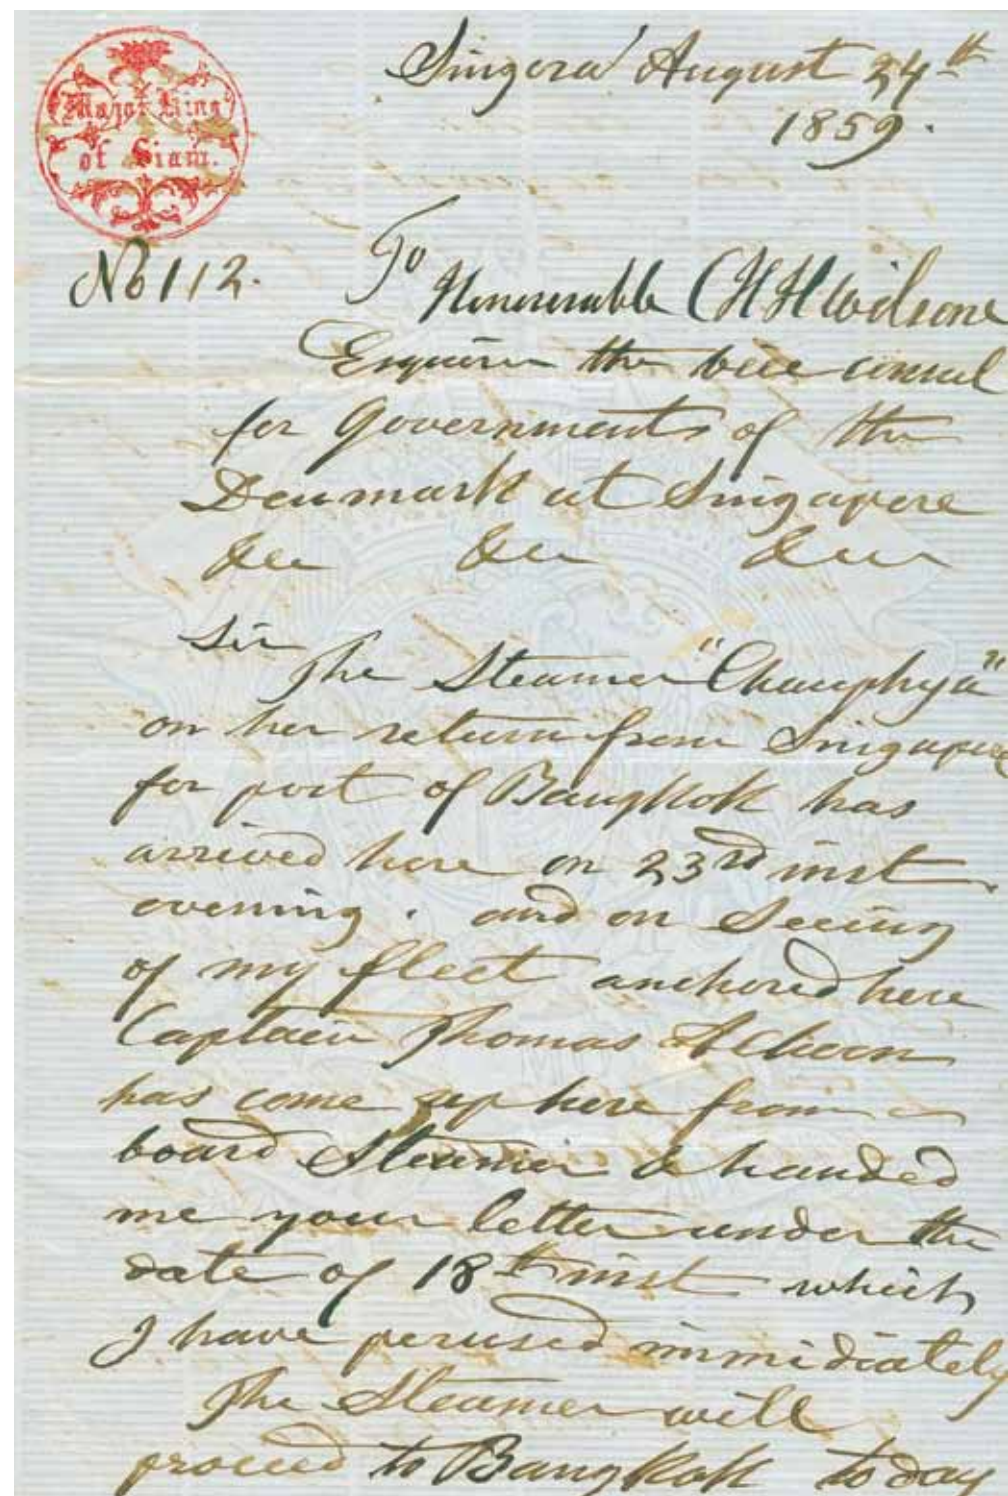 Singora August 24th
1859.
Major King
of Siam.
No 112.
To
Honourable C H H Wilsone
Esquire the vice consul
for Governments of the
Denmark at Singapore
&cc &cc &cc
Sir
The Steamer "Chauphya"
on her return from Singapore
for port of BangKok has
arrived here on 23rd inst
evening. and on Seeing
of my fleet anchored here
Captain Thomas
has come up here from
board Steamer & handed
me your letter under the
date of 18th inst which
I have perused immidiately
The Steamer will
proceed to BangKok to day